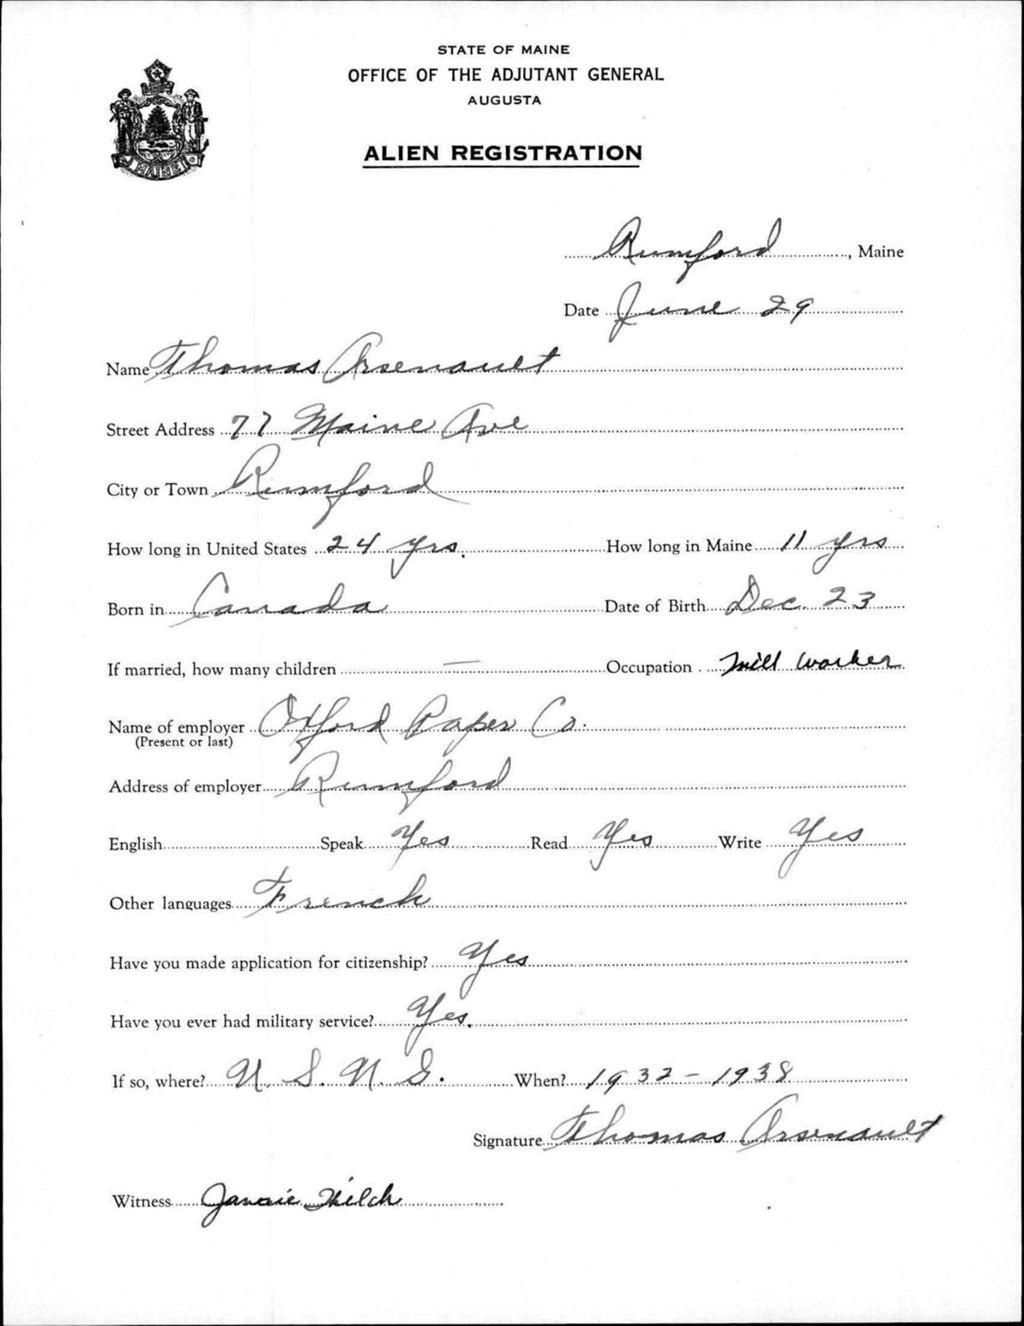 STATE OF MAINE
OFFICE OF THE ADJUTANT GENERAL
AUGUSTA
ALIEN REGISTRATION
MAINE
Rumford, Maine
Date June 29
Name Thomas Arsenault
Street Address 77 Maine Ave
City or Town Rumford
How long in United States 24 yrs. How long in Maine 11 yrs
Born in Canada Date of Birth Dec. 23
If married, how many children — Occupation Mill Worker
Name of employer Oxford Paper Co.
(Present or last)
Address of employer Rumford
English Speak Yes Read Yes Write Yes
Other languages French
Have you made application for citizenship? Yes
Have you ever had military service? Yes.
If so, where? U. S. N. G. When? 1932-1938
Signature Thomas Arsenault
Witness